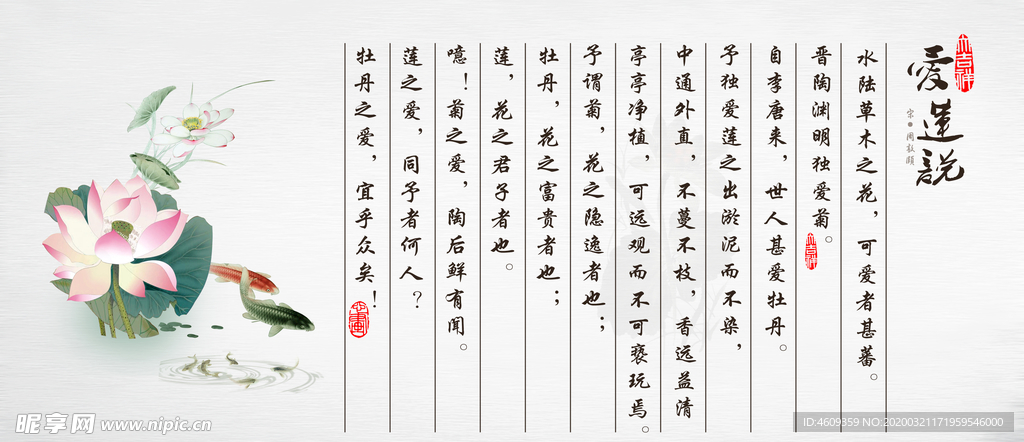 愛蓮說
宋·周敦頤
水陆草木之花，可爱者甚蕃。
晋陶渊明独爱菊。
自李唐来，世人甚爱牡丹。
予独爱莲之出淤泥而不染，
中通外直，不蔓不枝，香远益清
亭亭净植，可远观而不可亵玩焉。
予谓菊，花之隐逸者也；
牡丹，花之富贵者也；
莲，花之君子者也。
噫！菊之爱，陶后鲜有闻。
莲之爱，同予者何人？
牡丹之爱，宜乎众矣！
昵享网 www.nipic.cn
ID:4609359 NO:20200321171959546000